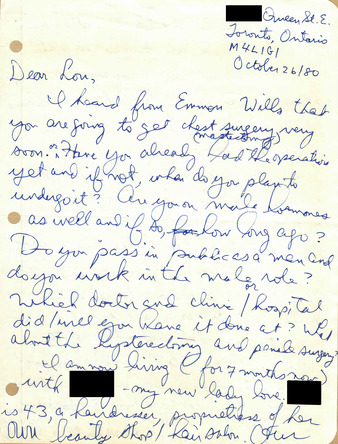 Queen St. E.
Toronto, Ontario
M4L1G1
October 26/80
Dear Lou,
I heard from Emmon Wills that
you are going to get chest surgery very
(mastectomy)
soon. or Have you already had the operation
yet and if not, when do you plan to
undergo it? Are you on male hormones
as well and if so, for how long ago?
Do you pass in public as a man and
do you work in the male role?
Which doctor and or clinic/hospital
did/will you have it done at? What
about the hysterectomy and penile surgery?
I am now living (for 7 months now)
with - my new lady love.
is 43, a hairdresser, proprietress of her
own beauty shop/hair salon. (Her